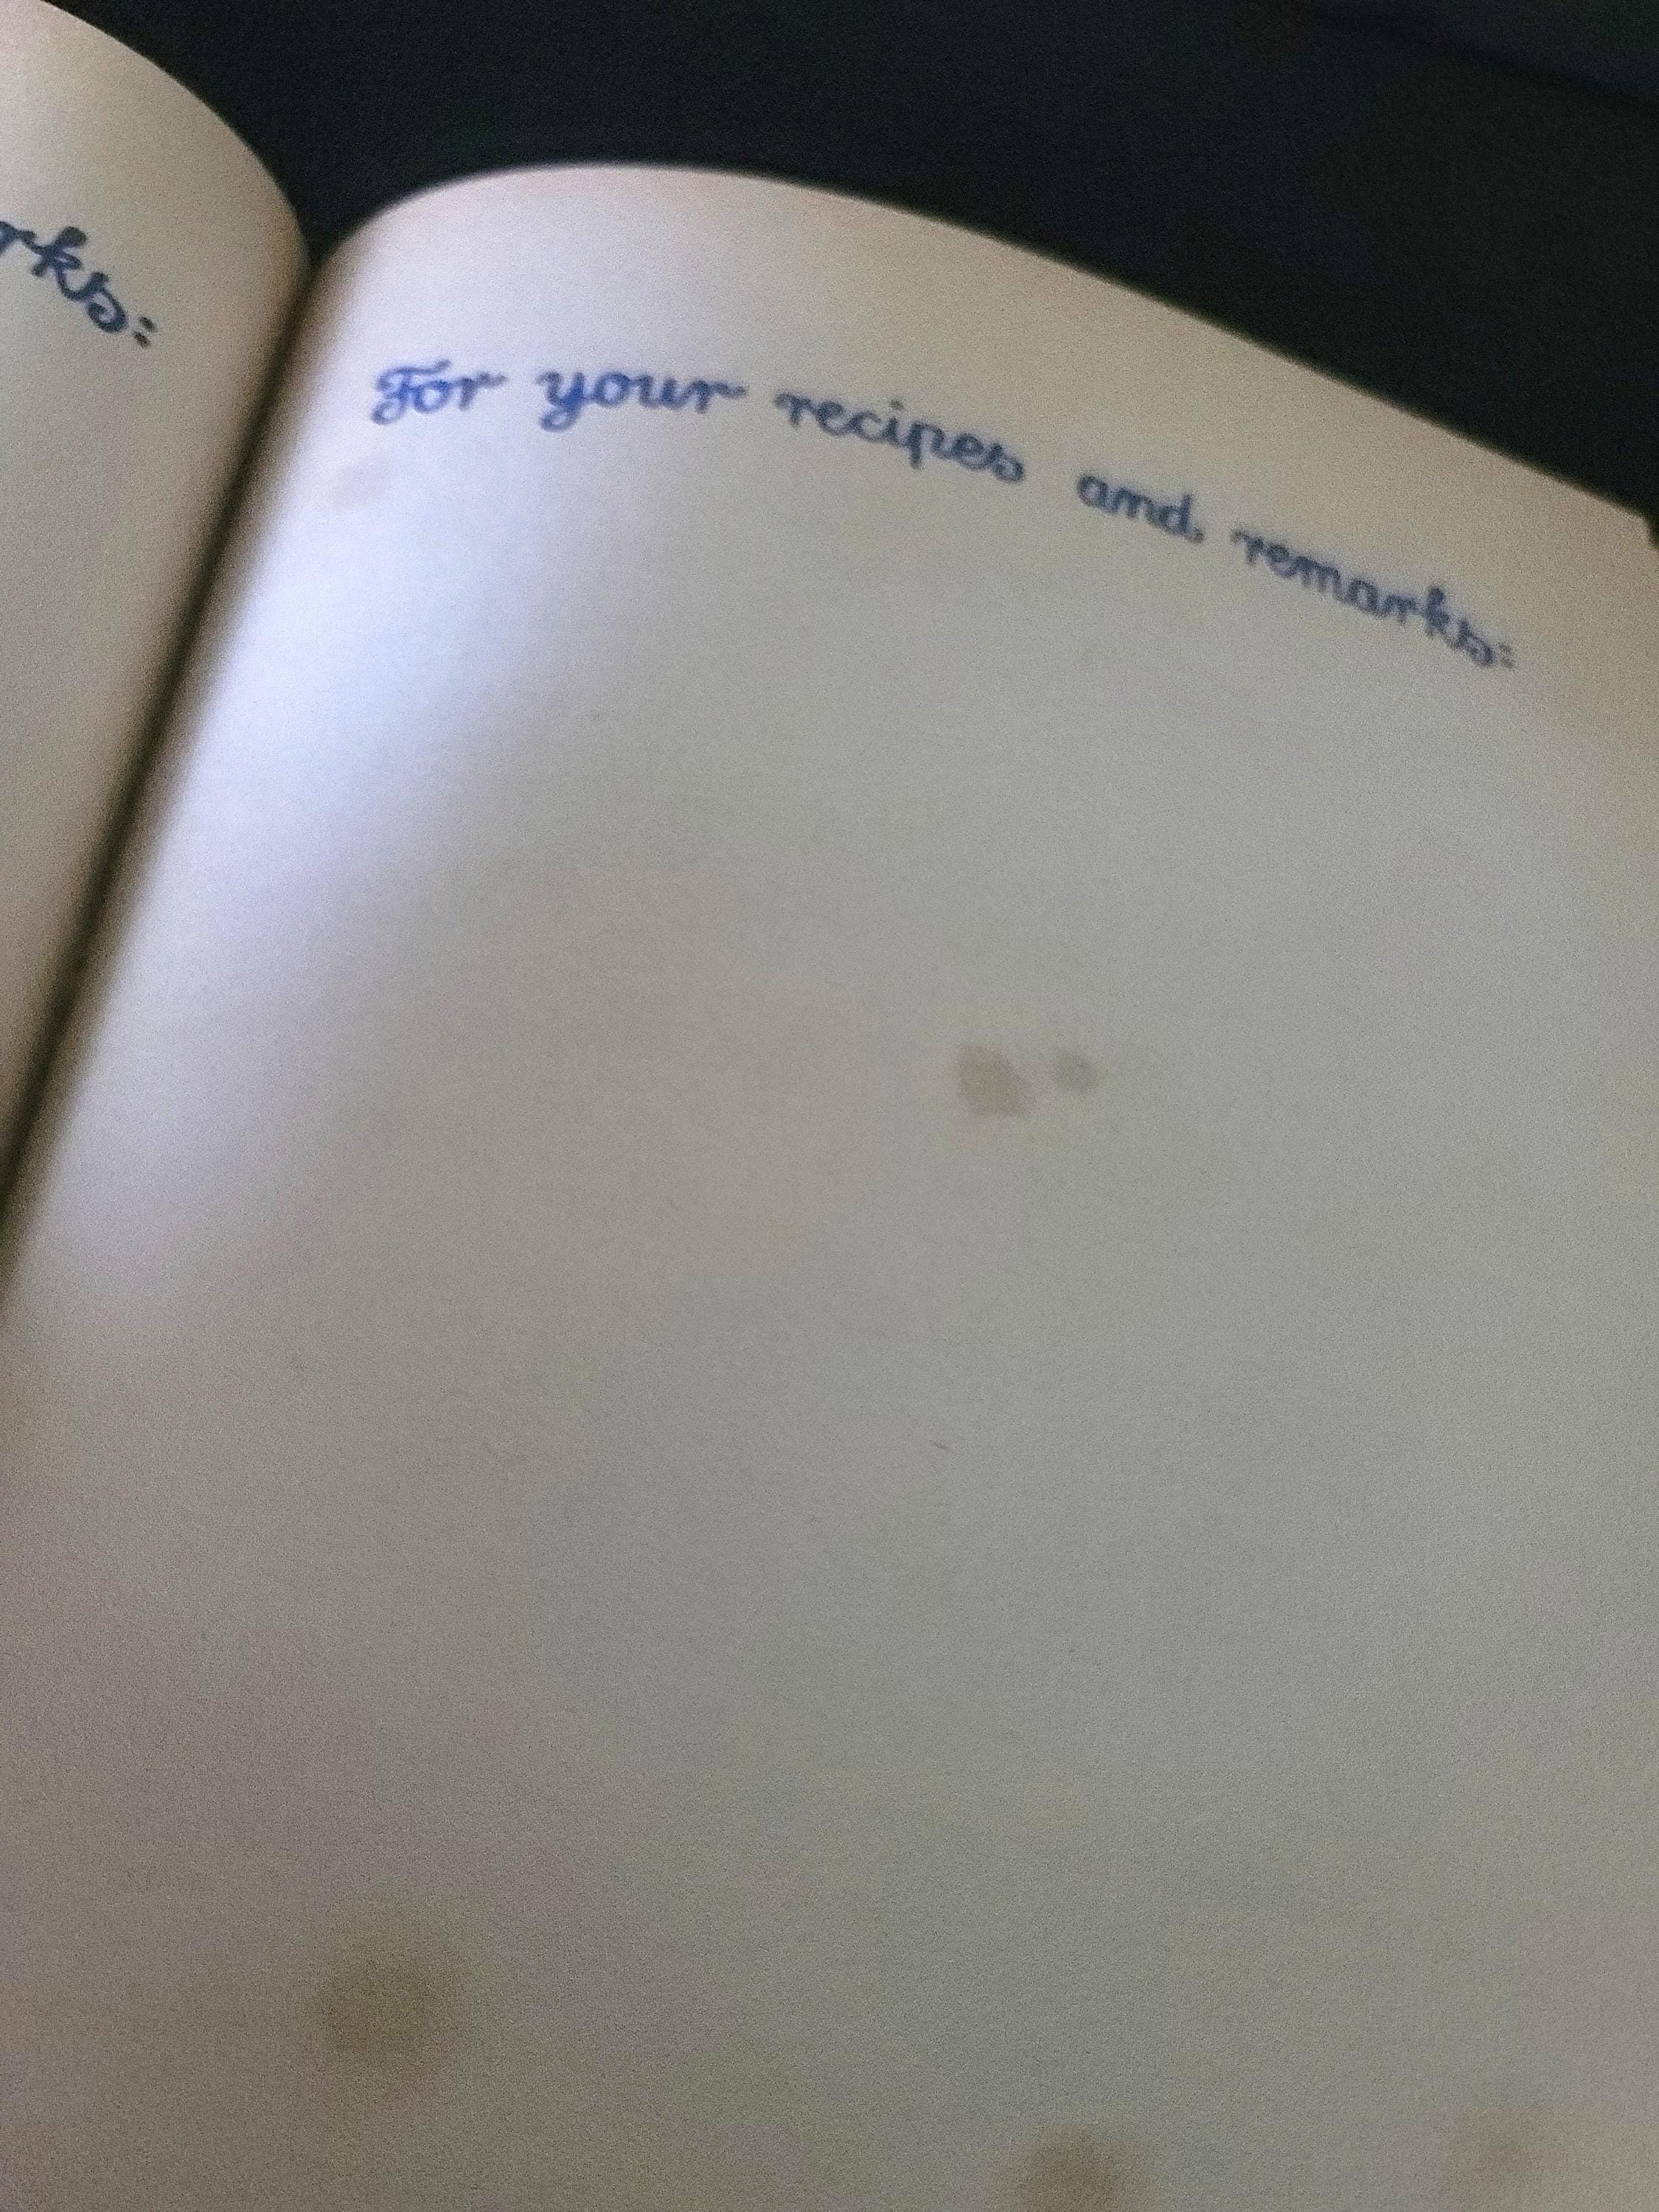 rks:
For your recipes and remarks: